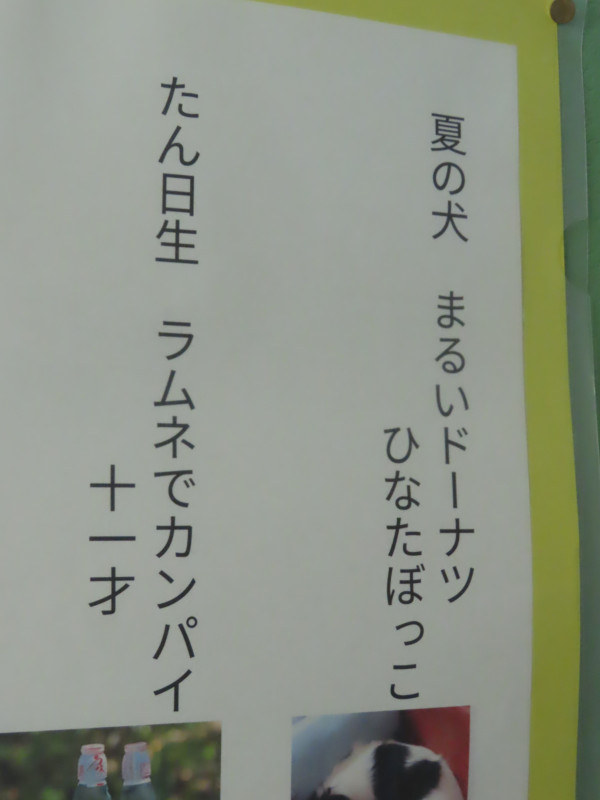 夏の犬　まるいドーナツ
ひなたぼっこ
たん日生　ラムネでカンパイ
十一才